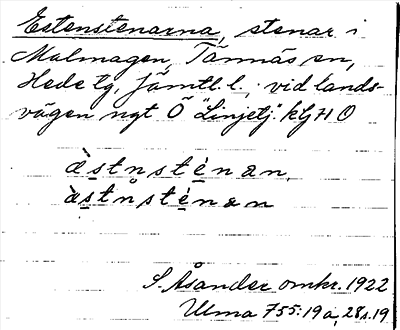 Estenstenarna, stenar i
Malmagen, Tännäs sn,
Hede tg, Jämtl. l., vid lands-
vägen ngt Ö "Linjetj." kGHO
àstn̥sténan,
àstn̥sténan
S. Åsander omkr. 1922
Ulma 755:19 a, 28 s. 19